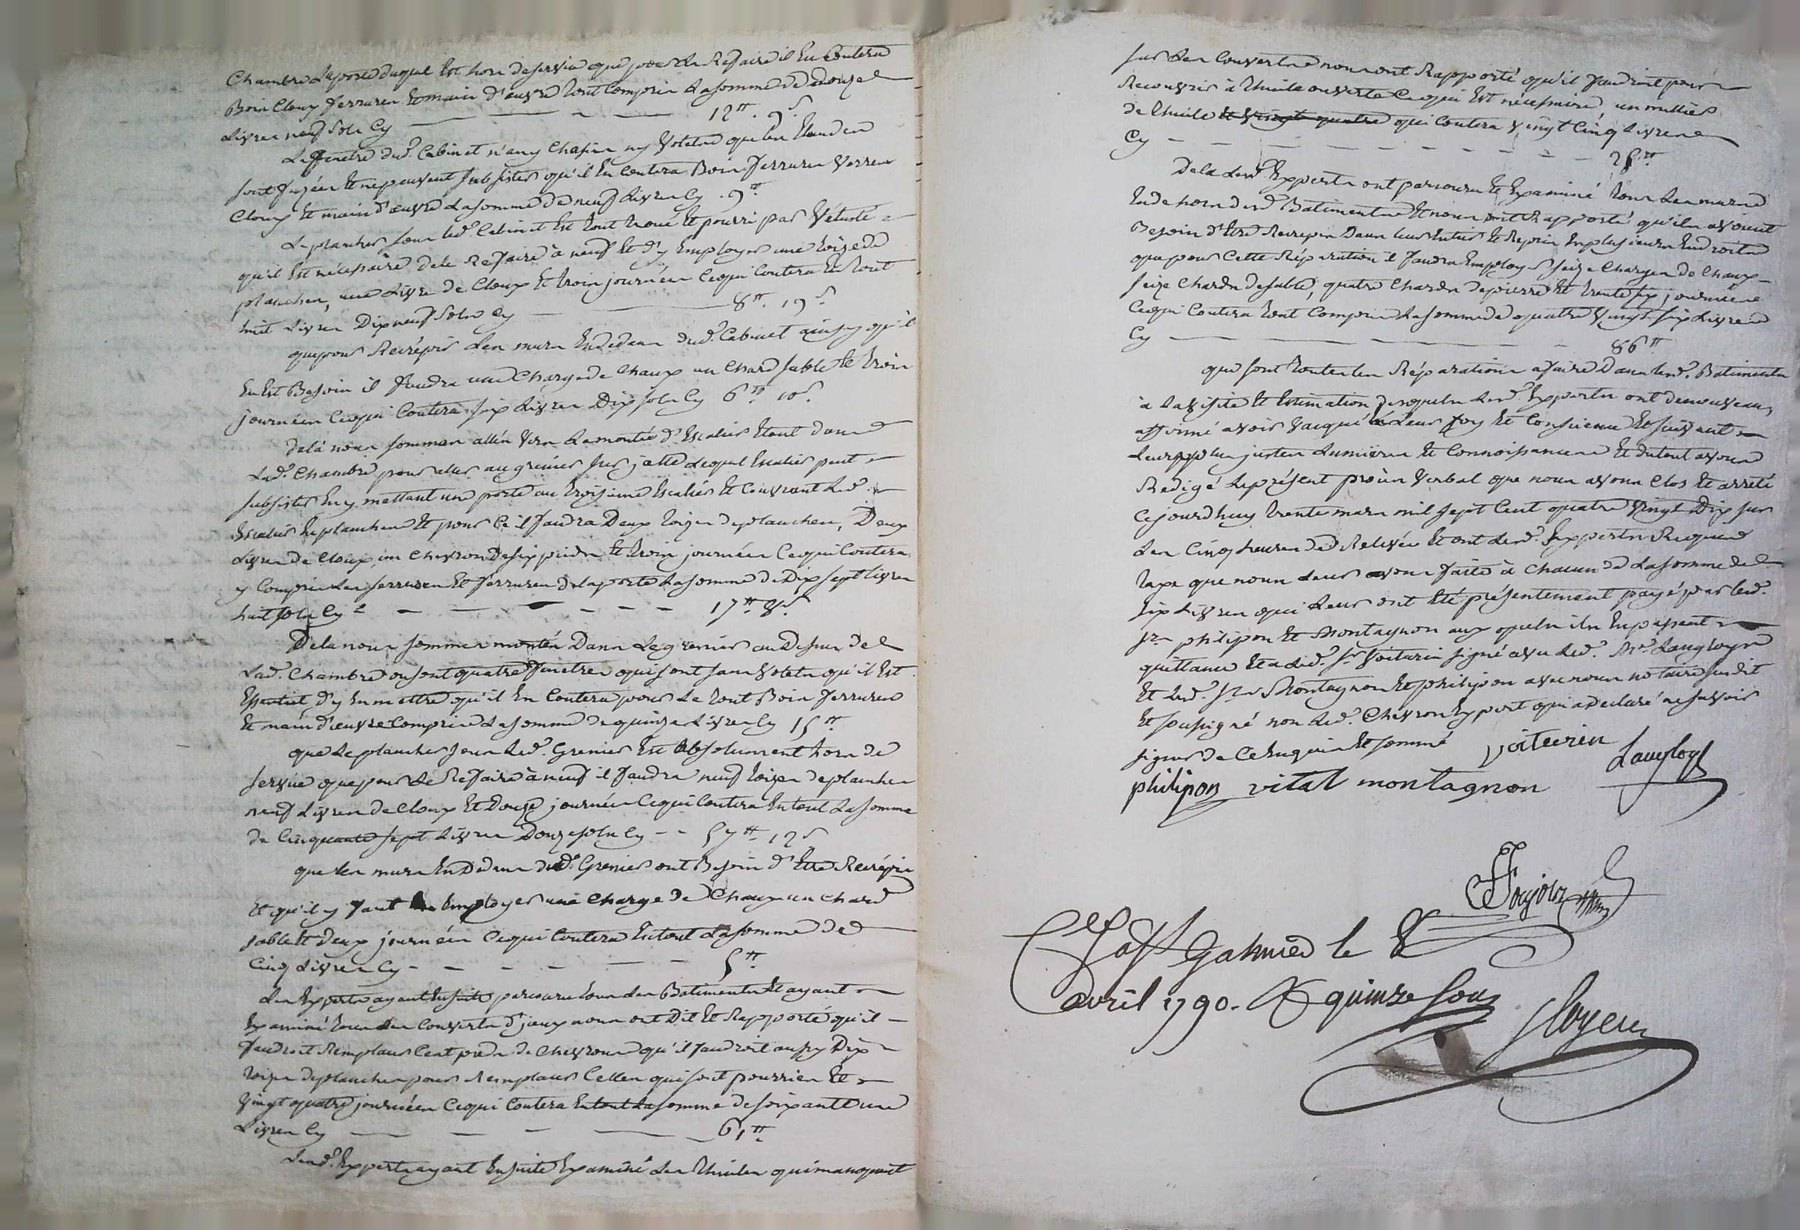 Chambre la porte duquel Est hors de service que pour la Refaire il En Coutera
Bois Cloux ferrures Et main d'euvre tout Compris La somme de douze
Livres neuf sols Cy 12ᵗᵗ. 9ˢ
La fenêtre dud. Cabinet n'a ny Chassis ny Volets que les Etandes
sont usées Et ne peuvent subsister qu'il En Coutera Bois ferrures Verres
Cloux Et main d'œuvre La somme de neuf Livres Cy . 9ᵗᵗ
Le plancher sous led. Cabinet Est tout troué Et pourri par Vetusté
qu'il Est nécessaire de le Refaire à neuf Et d'y Employer une toize de
planches, une Livre de Cloux Et trois journées Ce qui Coutera En tout
huit Livres Dix neuf sols Cy 8ᵗᵗ. 19ˢ
que pour Recrépir Les murs En dedans dud. Cabinet ainsy qu'il
En Est Besoin il faudra une Charge de Chaux un Chard sable Et trois
journées Ce qui Coutera six Livres Dix sols Cy 6ᵗᵗ 10ˢ.
De là nous sommes allés vers La montée d'Escalier Etant dans
Lad. Chambre pour aller au grenier sur jcelle Lequel Escalier peut
subsister En y mettant une porte au troisieme Escalier Et Couvrant Led.
Escalier En planches Et pour Ce il faudra Deux toizes de planches, Deux
Livres de Cloux, un Chevron de six pieds Et trois journées Ce qui Coutera
y Compris Les serrures Et ferrures de la porte La somme de Dix sept Livres
huit sols Cy 17ᵗᵗ 8ˢ
De la nous sommes montés Dans Le grenier au Dessus de
Lad. Chambre ou sont quatre fenetres qui sont sans Volets qu'il Est
Essentiel d'y En mettre qu'il En Coutera pour Le tout Bois ferrures
Et main d'euvre Compris La somme de quinze Livres Cy 15ᵗᵗ
que Le plancher sous Led. Grenier Est absolument hors de
service que pour Le Refaire à neuf il faudra neuf toizes de planches
neuf Livres de Cloux Et Douze journées Ce qui Coutera En tout La somme
de Cinquante sept Livres Douze sols Cy 57ᵗᵗ 12ˢ
que Les murs En Dedans dud. Grenier ont Besoin d'Etre Recrépis
Et qu'il y faut Employer une Charge de Chaux un Chard
sable Et deux journées Ce qui Coutera En tout La somme de
Cinq Livres Cy 5ᵗᵗ
Les Experts ayant Ensuite parcouru tous les Batiments Et ayant
Examiné tous Les Couverts d'jceux nous ont Dit Et Rapporté qu'il
faudroit Remplacer Cent pieds de Chevrons qu'il faudroit aussy Dix
toizes de planches pour Remplacer Celles qui sont pourries Et
vingt quatre journées Ce qui Coutera En tout La somme de soixante une
Livres Cy 61ᵗᵗ
Lesd. Experts ayant Ensuite Examiné Les Thuiles qui manquent
sur Les Couverts nous ont Rapporté qu'il faudroit pour
Recouvrir à thuile ouverte Ce qui Est nécessaire un millier
de thuile Et vingt quatre qui Coutera vingt Cinq Livres
Cy 25ᵗᵗ
De là Lesd. Experts ont parcouru Et Examiné tous Les murs
En dehors desd. Batiments Et nous ont Rapporté qu'ils avoient
Besoin d'Etre Recrepis Dans leur Entier Et Repris En plusieurs Endroits
que pour Cette Réparation il faudra Employer seize Charges de Chaux
seize Chards de sable, quatre Chards de pierre Et trente six journées
Ce qui Coutera tout Compris La somme de quatre vingt six Livres
Cy 86ᵗᵗ
que sont toutes les Réparations a faire Dans lesd. Batiments
à La Visite Et Estimation desquels Lesd. Experts ont de nouveau
affirmé avoir vacqué En Leur foy Et Conscience Et suivant
Leurs plus justes Lumieres Et Connoissances Et du tout avons
Redigé Le présent procès verbal que nous avons Clos Et arreté
Cejourd'huy trente mars mil sept Cent quatre vingt Dix sur
Les Cinq heures de Relevée Et ont Lesd. Experts Requis
taxe que nous Leurs avons faite à Chacun de La somme de
six Livres qui Leurs ont Eté présentement payés par Lesd.
srs. philipon Et Montagnon aux quels ils En passent
quittance Et a Led. sr. Voiturin signé avec Led. Me. Langloys
Et Lesd. srs. Montagnon Et philipon avec nous notaire susdit
Et soussigné non Led. Chevron Expert qui a declaré ne savoir
signer de Ce Enquis Et sommé
voiturin
Langloys
philipon vital montagnon
Coll. Galmier le 8
avril 1790. R quinze sous